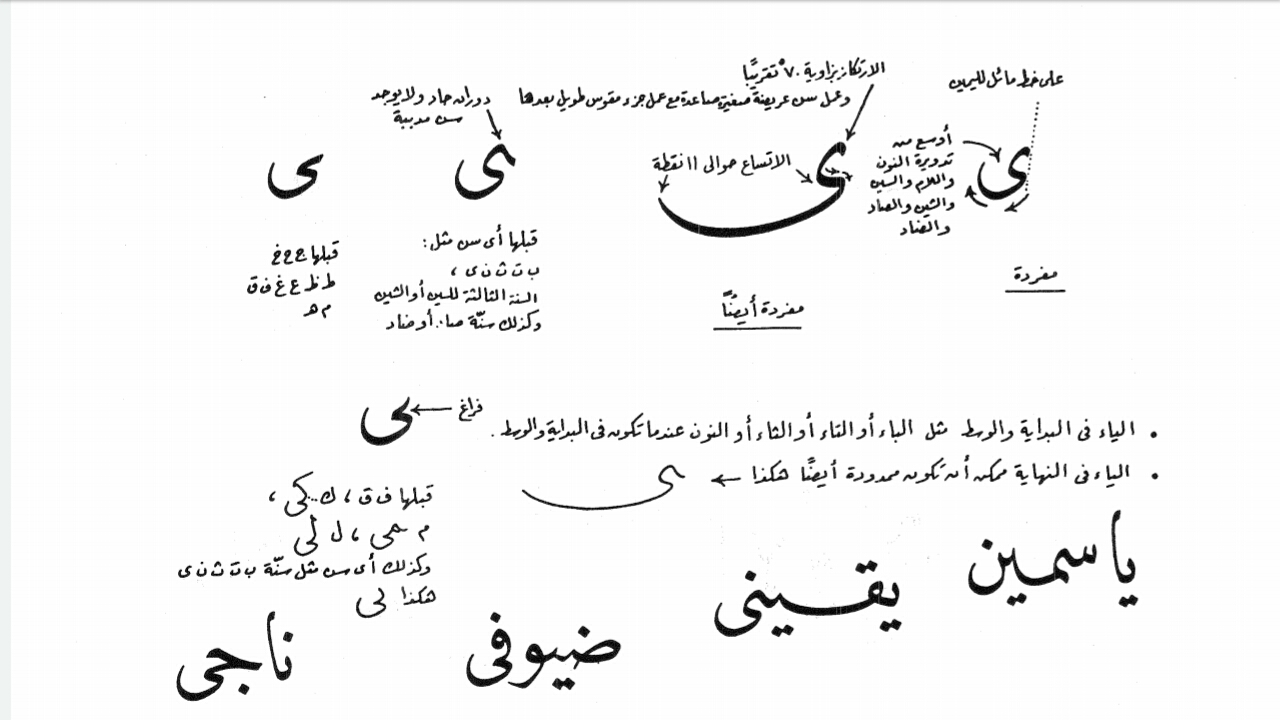 على خط مائل لليمين
ى
أوسع من
تدويرة النون
واللام والسين
والشين والصاد
والضاد
مفردة
الارتكاز بزاوية ٧٠° تقريبًا
وعمل سن عريضة صغيرة صاعدة مع عمل جزء مقوس طويل بعدها
ى
الاتساع حوالى ١١ نقطة
مفردة أيضًا
دوران حاد ولا يوجد
سن مدببة
ى
قبلها أى سن مثل :
ب ت ث ن ى ،
السنة الثالثة للسين أو الشين
وكذلك سنّة صاد أو ضاد
ى
قبلها ج ح خ
ط ظ ع غ ف ق
م هـ
• الياء فى البداية والوسط مثل الباء أو التاء أو الثاء أو النون عندما تكون فى البداية والوسط .
• الياء فى النهاية ممكن أن تكون ممدودة أيضًا هكذا ى
فراغ
ى
قبلها ف ق ، ك كى ،
م مى ، ل لى
وكذلك أى سن مثل سنّة ب ت ث ن ى
هكذا لى
ياسمين
يقينى
ضيوفى
ناجى